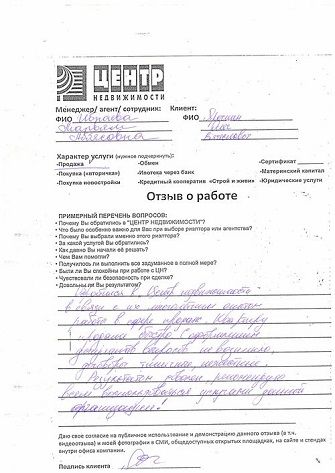 ЦЕНТР
НЕДВИЖИМОСТИ
Менеджер/ агент/ сотрудник: Клиент:
ФИО ФИО
Характер услуги (нужное подчеркнуть):
-Продажа -Обмен -Сертификат
-Покупка («вторичка») -Ипотека через банк -Материнский капитал
-Покупка новостройки -Кредитный кооператив «Строй и живи» -Юридические услуги
Отзыв о работе
ПРИМЕРНЫЙ ПЕРЕЧЕНЬ ВОПРОСОВ:
• Почему Вы обратились в "ЦЕНТР НЕДВИЖИМОСТИ"?
• Что было особенно важно для Вас при выборе риэлтора или агентства?
• Почему Вы выбрали именно этого риэлтора?
• За какой услугой Вы обратились?
• Как давно Вы начали её решать?
• Чем Вам помогли?
• Получилось ли выполнить все задуманное в полной мере?
• Были ли Вы спокойны при работе с ЦН?
• Чувствовали ли безопасность при сделке?
• Довольны ли Вы результатом?
Обратился в Центр недвижимости
в связи с их опытом
работы в сфере Квартиру
продали быстро. С оформлением
документов не возникло,
Результатом доволен, рекомендую
всем воспользоваться услугами данной
организации!
Даю свое согласие на публичное использование и демонстрацию данного отзыва (в т.ч.
видеоотзыва) и моей фотографии в СМИ, общедоступных открытых площадках, на сайте и стендах
внутри офиса компании.
Подпись клиента